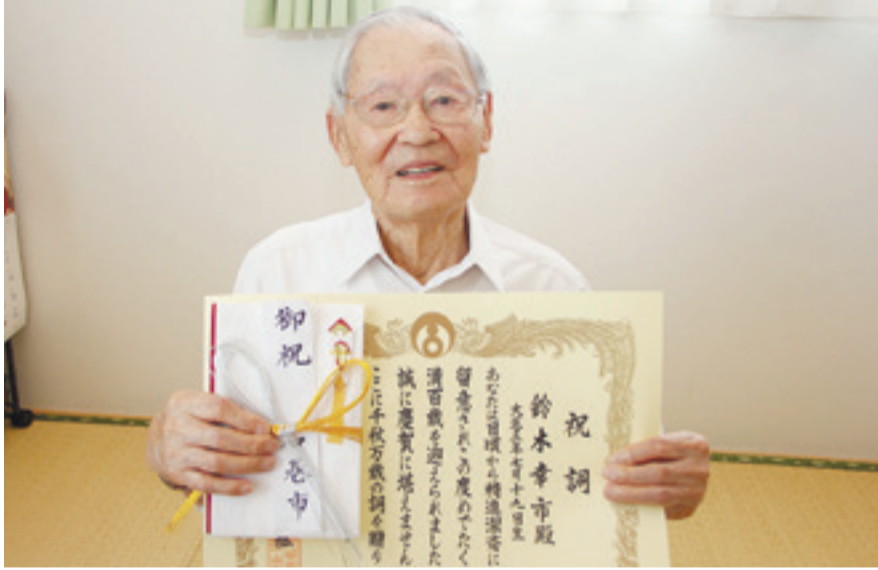 祝詞
鈴木幸市殿
大正五年七月十九日生
あなたは日頃から精進潔斎に
留意されこの度めでたく
満百歳を迎えられました
誠に慶賀に堪えません
に千秋万歳の詞を贈り
御祝
巻市